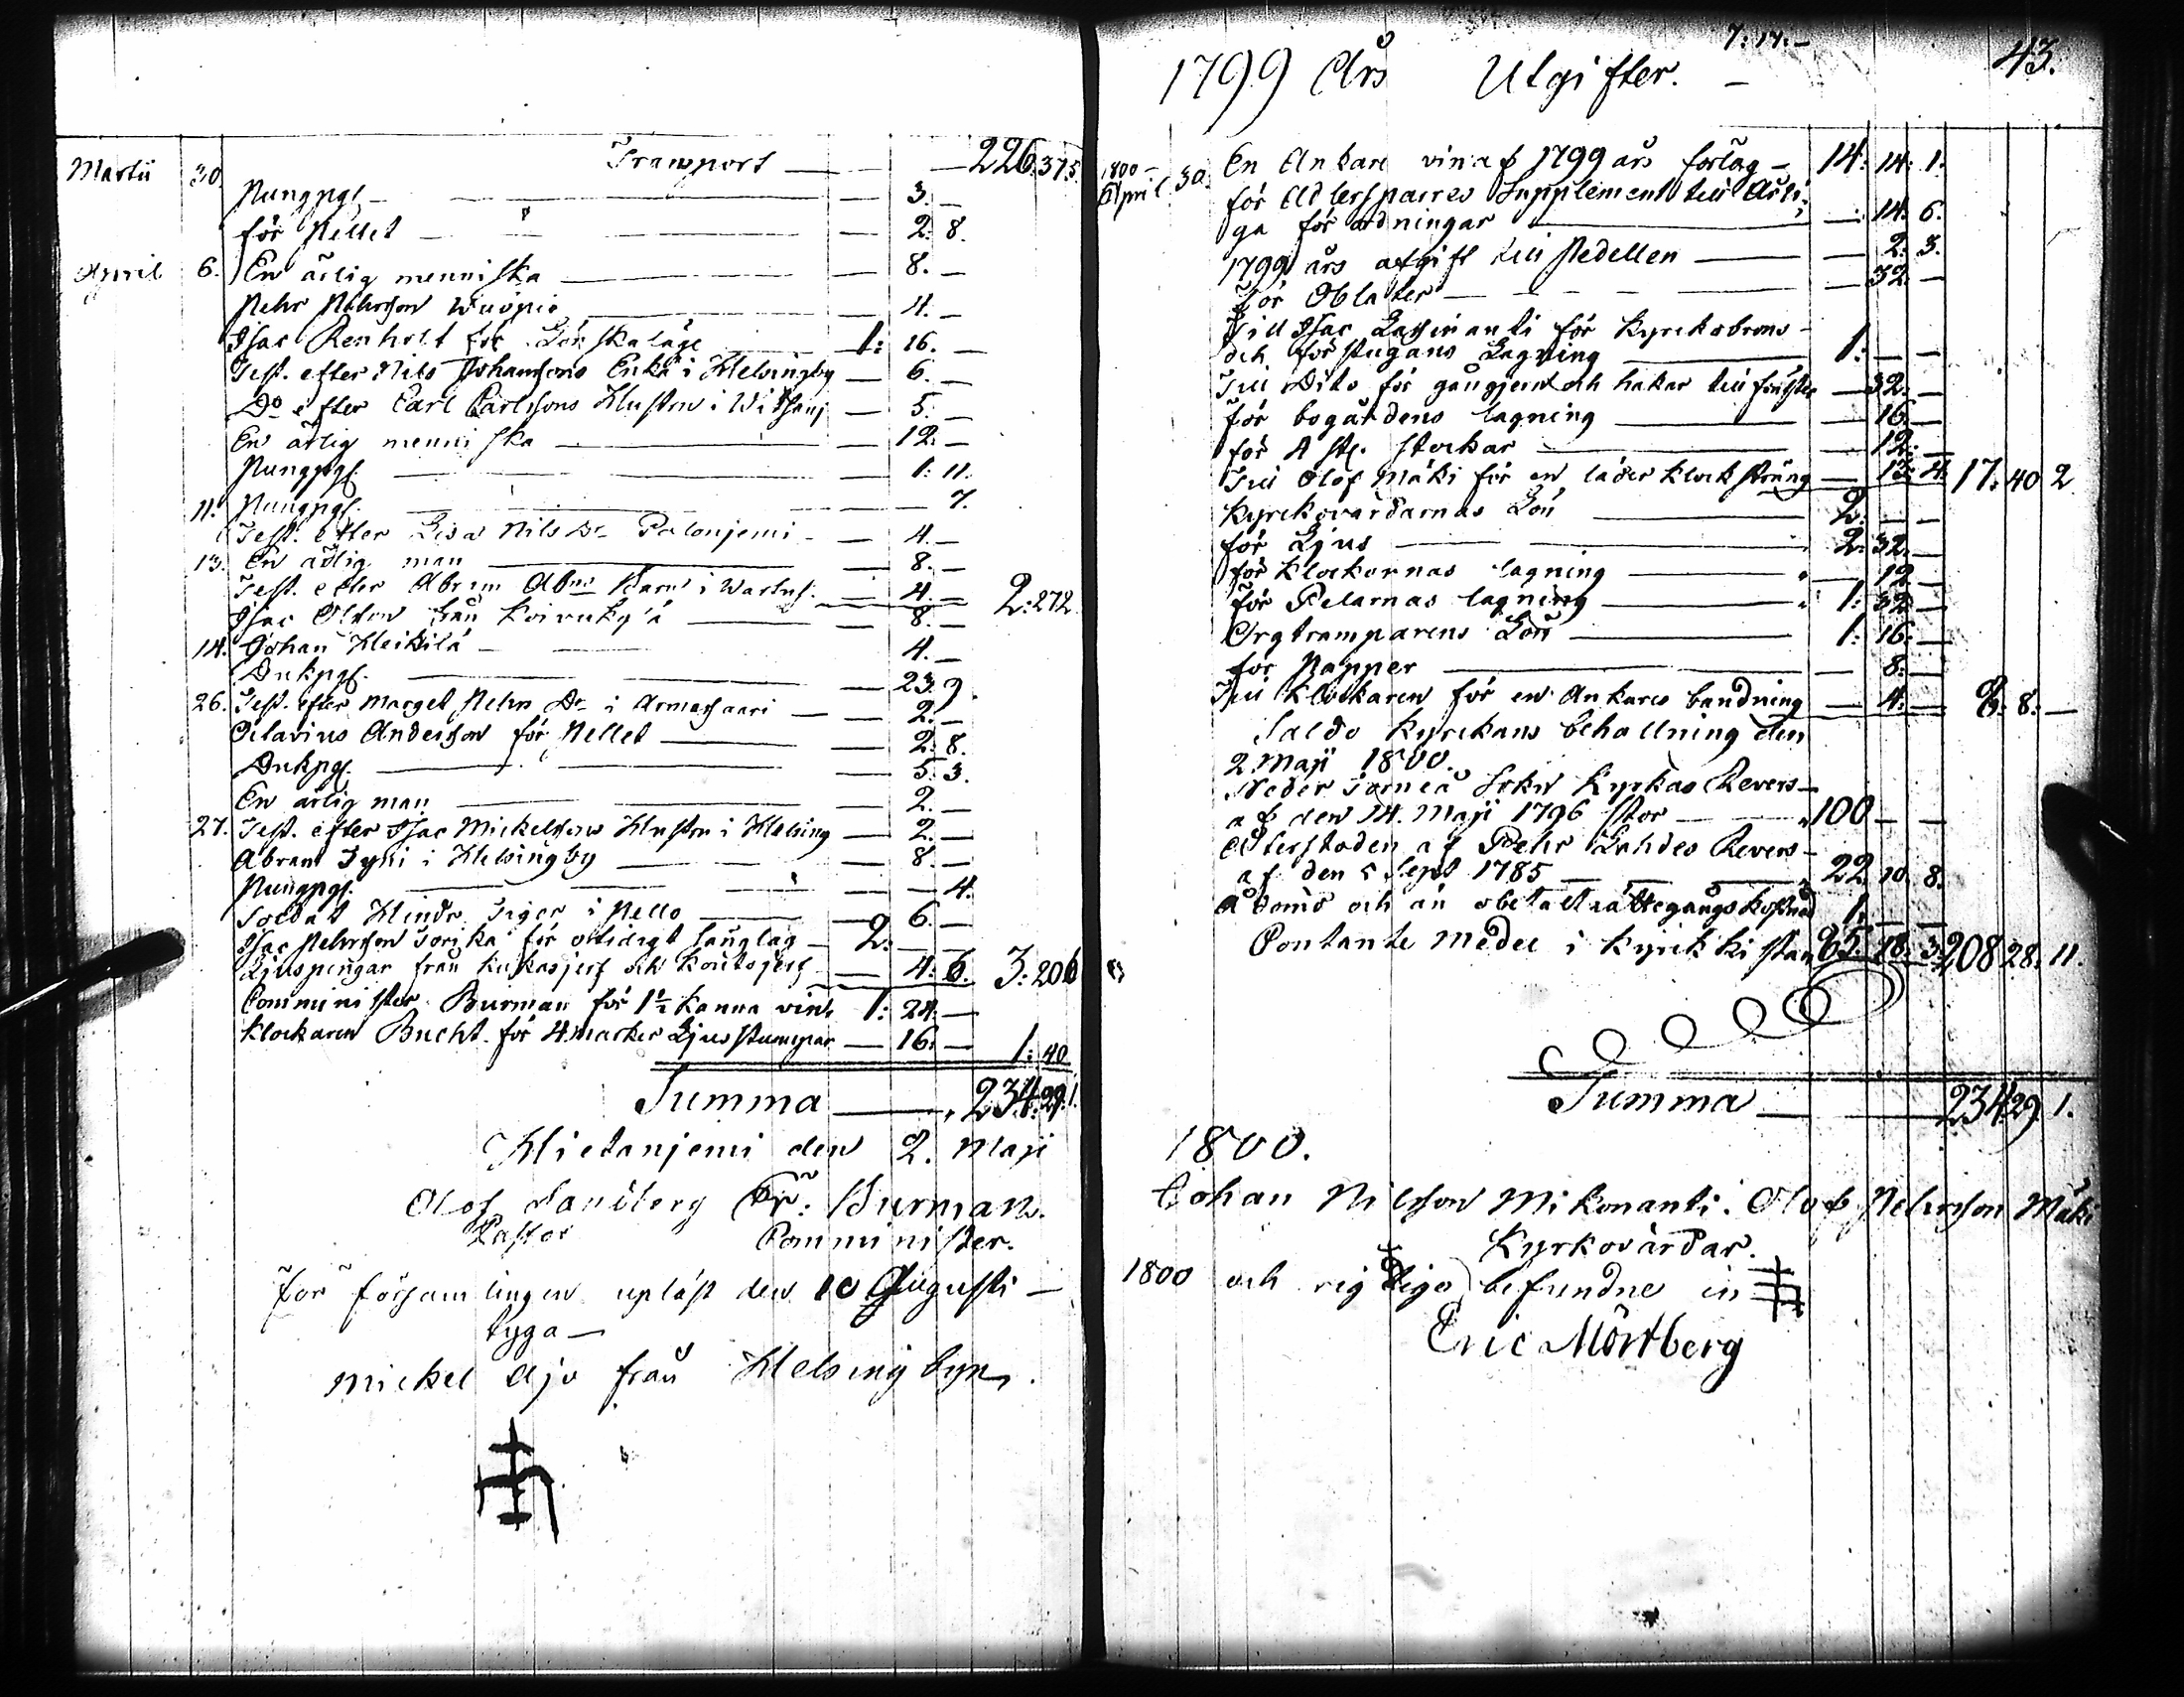 Transport — 226. 37 5.
Martii 30. Pungpg — 3. —
för Pellet — 2. 8.
April 6. En ärlig menniska — 8. —
Pehr Pehrsson Wuopio — 4. —
Isac Renholt för Lönskaläge 1: 16. —
Test. efter Nils Johanssons Enka i Helsingby — 6. —
Do efter Carl Carlssons Hustru i — 5. —
En ärlig menniska — 12. —
Pungpg. — 1. 11.
11. Pungpg. — 7.
Test. efter Lisa Nils Dr Palonjemi — 4. —
13. En ärlig man — 8. —
Test. efter Abram barn i — 4. — 2: 27 2.
Isac Olsson från — 8. —
14. Johan Heikilä — 4. —
Bukpg. — 23. 9.
26. Test. efter Marget Pehrs Dr i Armassaari — 2. —
Octavius Andersson för Pellet — 2. 8.
Bukpg. — 5. 3.
En ärlig man — 2. —
27. Test. efter Isac Mickelssons Hustru i Helsing — 2. —
Abram i Helsingby — 8. —
Pungpg. — 4.
Soldat Hindr. Tiger i Pello — 6. —
Isac Pehrsson för otidigt sänglag — 2. — —
Ljuspengar från och — 4. 6. 3: 20 6
Comminister Burman för 1½ kanna vin 1: 24. —
Klockaren Bucht för 4 marker Ljusstumpar — 16. — 1: 40
Summa — 234. 29. 1.
Hietanjemi den 2. Maji
Olof Sandberg Er: Burman.
Pastor Comminister.
För församlingen upläst den 10 Augusti —
tyga —
Michel Ajo från Helsingbyn.
7: 17: —
43.
1799 Års Utgifter. —
1800 — April 30. En Ankare vin af 1799 års förlag — 14: 14: 1.
för Adlersparres Supplement till Kyrli-
ga förordningar — 14. 6.
1799 års afgift till Pedellen — 2. 3.
För Oblater — 32. —
Till Isac för Kyrckobrons —
och förstugans Lagning 1: — —
Till Dito för gångjern och hakar till fönster — 32. —
för bogårdens lagning — 16. —
för 4 st. stockar — 12. —
Till Olof Mäki för en läder klocksträng — 13. 4. 17: 40 2
Kyrckovärdarnas Lön 2. — —
för Ljus 2. 32. —
för Klockornas lagning — 12 —
för Pelarnas lagning 1: 32 —
Orgtramparens Lön 1: 16. —
för Papper — 8. —
Till Klockaren för en Ankares bandning — 4. — 8: 8: —
Saldo Kyrckans behållning den
2 Maji 1800.
Neder Torneå Sokn Kyrkas Revers —
af den 14. Maji 1796 stor — 100 — —
Återstoden af Pehr Lahdes Revers —
af den 5 Sept 1785 — 22. 10. 8.
Ådömd och än obetalt rättegångskostnad 1. — —
Contante Medel i Kyrckkistan 85. 18. 3. 208 28. 11.
Summa — 234. 29 1.
1800.
Johan Nilsson Mikonanti. Olof Pehrsson Mäki
Kyrkovärdar.
1800 och rigtiga befundne in
Eric Mörtberg